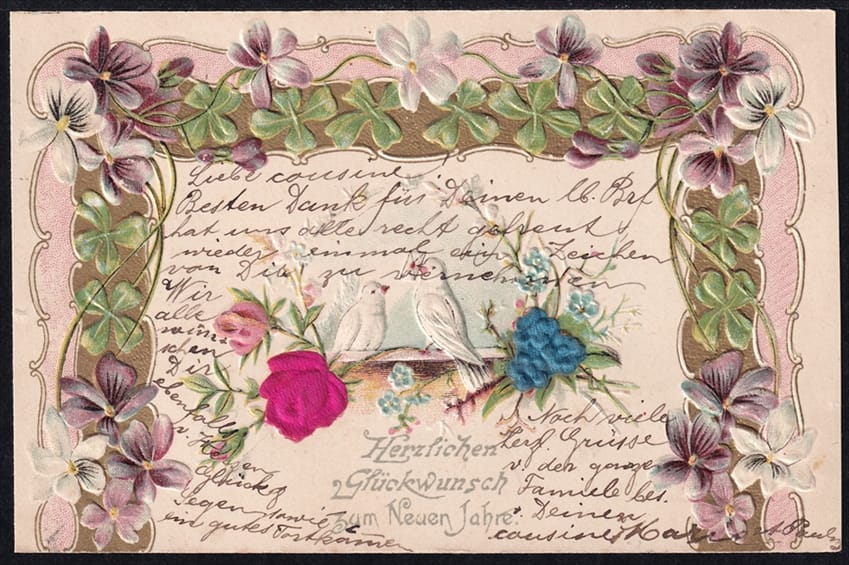 Liebe cousine!
Besten Dank für Deinen lb. Brf
hat uns alle recht gefreut
wieder einmal ein Zeichen
von Dir zu vernehmen
Wir
alle
wün-
schen
Dir
ebenfalls
v. Herzen
Glück &
Segen sowie
ein gutes Fortkommen
Herzlichen
Glückwunsch
zum Neuen Jahre.
Noch viele
herz. Grüsse
v. der ganze
Familie bes.
Deinen
cousine Marie